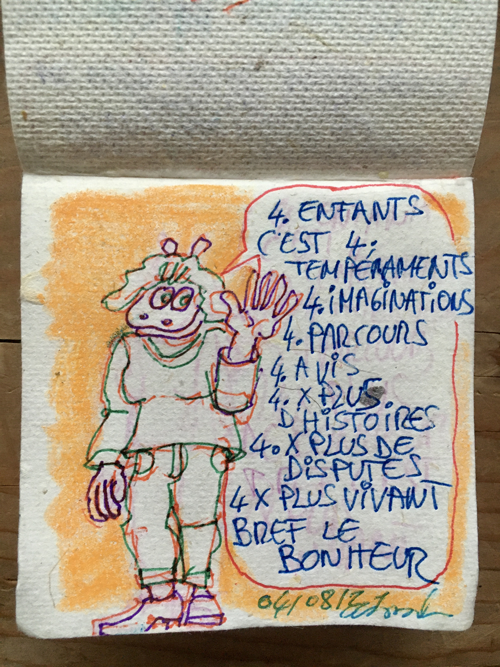 4. ENFANTS
C'EST 4.
TEMPÉRAMENTS
4. iMAGINATIONS
4. PARCOURS
4 AVIS
4. X PLUS
D'HISTOIRES
4. X PLUS DE
DISPUTES
4 X PLUS VIVANT
BREF LE
BONHEUR
04/08/